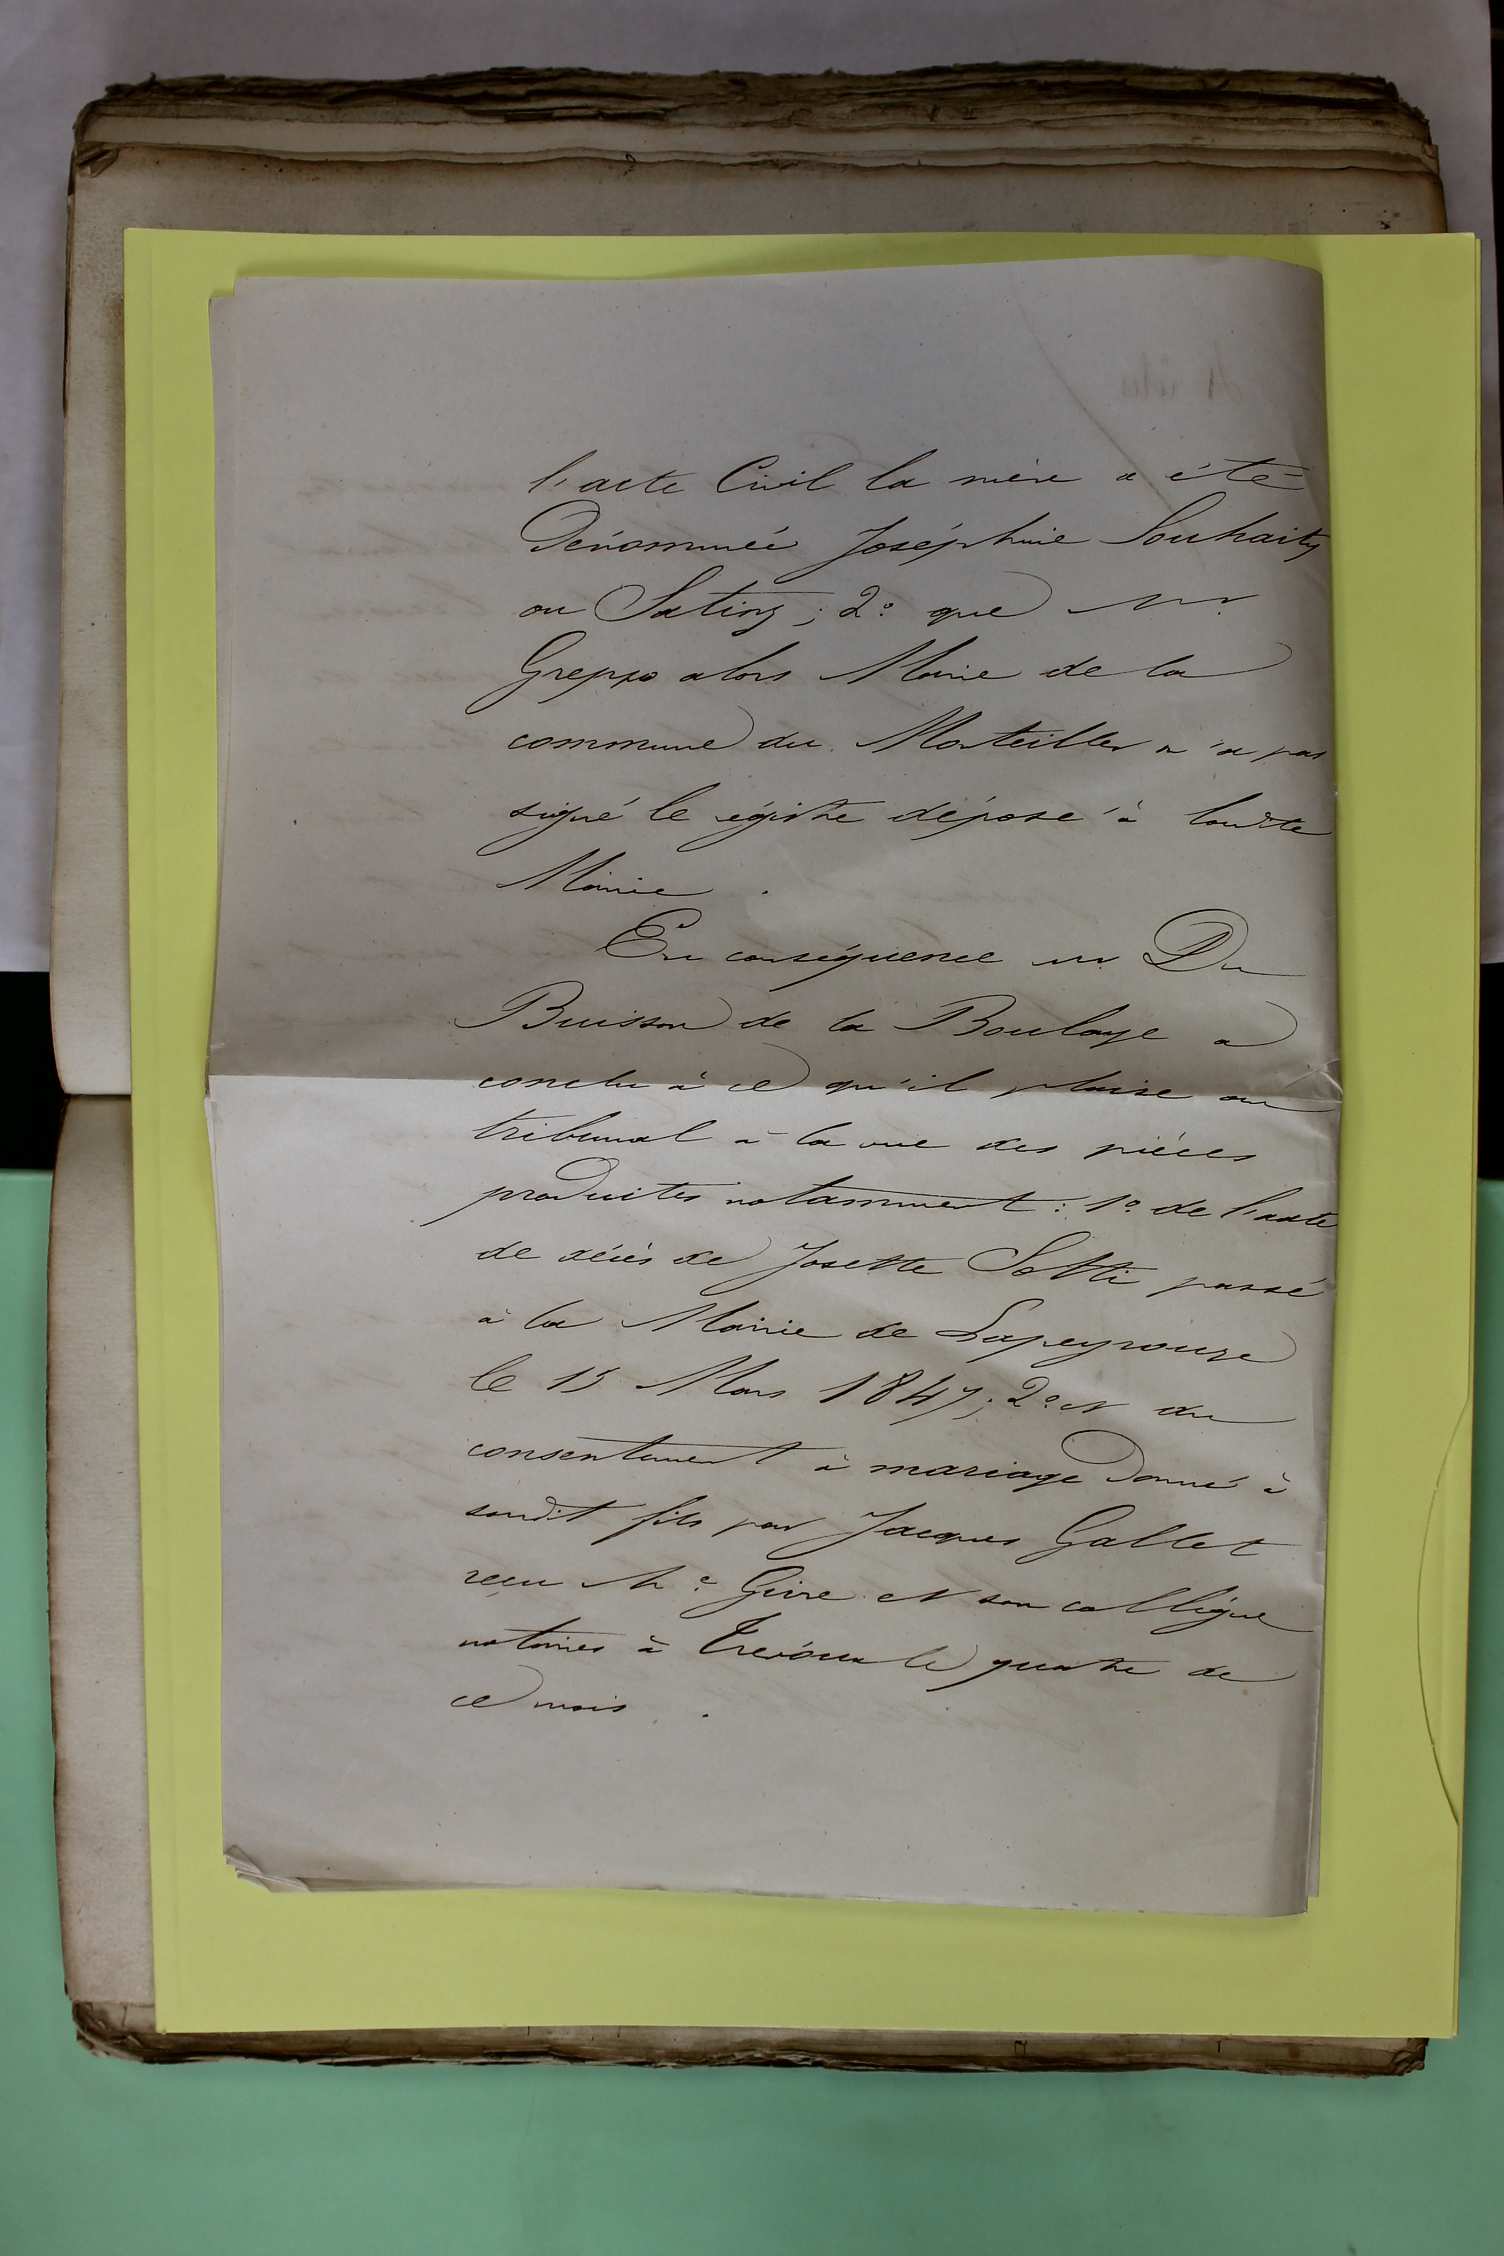 l'acte Civil la mère a été
Dénommée Joséphine Souhaity
ou Satiny; 2º que Mr
Greppo alors Maire de la
commune du Montellier n'a pas
signé le régistre déposé à ladite
Mairie.
En conséquence m. Du
Buisson de la Boulaye a
conclu à ce qu'il plaise au
tribunal à la vue des pièces
produites notamment: 1º de l'acte
de décès de Josette Sotti passé
à la Mairie de Lapeyrouse
le 15 Mars 1847; 2º et du
consentement à mariage Donné à
sondit fils par Jacques Gallet
reçu Me Givre et son collègue
notaires à Trévoux le quatre de
ce mois.